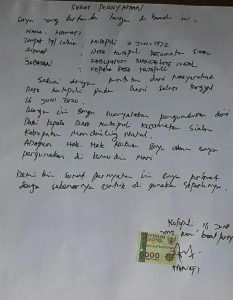 SURAT PERNYATAAN
Saya yang bertanda tangan di bawah ini :
Nama : MAHAPI
Tempat tgl/lahir, Hutapuli 7 Juni 1972
Alamat : Desa Hutapuli Kecamatan Siabu
Kabupaten Mandailing Natal
Jabatan : Kepala Desa Hutapuli
Sesuai dengan dari Masyarakat
Desa Hutapuli pada hari selasa tanggal
16 Juni 2020.
Dengan ini Saya menyatakan pengunduran diri
Dari Kepala Desa Hutapuli Kecamatan Siabu
Kabupaten Mandailing Natal.
Adapun Hak-Hak Saya akan saya
pergunakan di kemudian hari
Demi ini surat pernyataan ini Saya perbuat
dengan sebenarnya untuk di gunakan seperlunya.
Hutapuli 16 Juni
Saya buat
6000